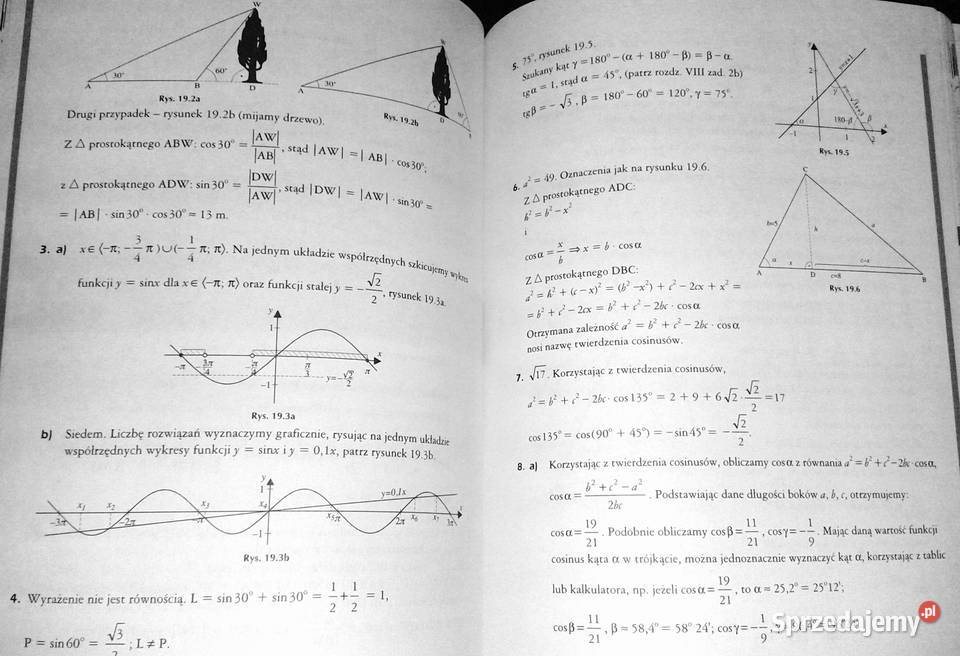 W
30°
60°
A
B
D
Rys. 19.2a
30°
A
D
Rys. 19.2b
Drugi przypadek – rysunek 19.2b (mijamy drzewo).
Z △ prostokątnego ABW: cos30° = |AW| / |AB|, stąd |AW| = |AB| · cos30°;
z △ prostokątnego ADW: sin30° = |DW| / |AW|, stąd |DW| = |AW| · sin30° =
= |AB| · sin30° · cos30° ≈ 13 m.
3. a) x∈⟨-π; -3/4 π⟩∪⟨-1/4 π; π⟩. Na jednym układzie współrzędnych szkicujemy wykres
funkcji y = sinx dla x∈⟨-π; π⟩ oraz funkcji stałej y = -√2/2, rysunek 19.3a.
y
1
x
-π
-3π/4
-π/4
π/3
π
y=-√2/2
-1
Rys. 19.3a
b) Siedem. Liczbę rozwiązań wyznaczymy graficznie, rysując na jednym układzie
współrzędnych wykresy funkcji y = sinx i y = 0,1x, patrz rysunek 19.3b.
y
1
y=0,1x
x₁ x₂ x₃ x₄ x₅ x₆ x₇
-3π -2π -π π 2π 3π
-1
Rys. 19.3b
4. Wyrażenie nie jest równością. L = sin30° + sin30° = 1/2 + 1/2 = 1,
P = sin60° = √3/2; L ≠ P.
5. 75°, rysunek 19.5.
Szukany kąt γ = 180° – (α + 180° – β) = β – α.
tgα = 1, stąd α = 45°, (patrz rozdz. VIII zad. 2b)
tgβ = – √3, β = 180° – 60° = 120°, γ = 75°.
y
2
γ
α
180-β
β
x
-1
1
2
Rys. 19.5
6. a² = 49. Oznaczenia jak na rysunku 19.6.
Z △ prostokątnego ADC:
h² = b² – x²
i
cosα = x/b ⇒ x = b · cosα
Z △ prostokątnego DBC:
a² = h² + (c – x)² = (b² – x²) + c² – 2cx + x² =
= b² + c² – 2cx = b² + c² – 2bc · cosα
Otrzymana zależność a² = b² + c² – 2bc · cosα
nosi nazwę twierdzenia cosinusów.
C
b=5
h
a
α
x
c-x
A
D
c=8
B
Rys. 19.6
7. √17. Korzystając z twierdzenia cosinusów,
a² = b² + c² – 2bc · cos135° = 2 + 9 + 6√2 · √2/2 = 17
cos135° = cos(90° + 45°) = – sin45° = – √2/2.
8. a) Korzystając z twierdzenia cosinusów, obliczamy cosα z równania a² = b² + c² – 2bc · cosα,
cosα = (b² + c² – a²) / 2bc. Podstawiając dane długości boków a, b, c, otrzymujemy:
cosα = 19/21. Podobnie obliczamy cosβ = 11/21, cosγ = – 1/9. Mając daną wartość funkcji
cosinus kąta α w trójkącie, można jednoznacznie wyznaczyć kąt α, korzystając z tablic
lub kalkulatora, np. jeżeli cosα = 19/21, to α ≈ 25,2° = 25°12';
cosβ = 11/21, β ≈ 58,4° = 58° 24'; cosγ = – 1/9,
Sprzedajemy.pl